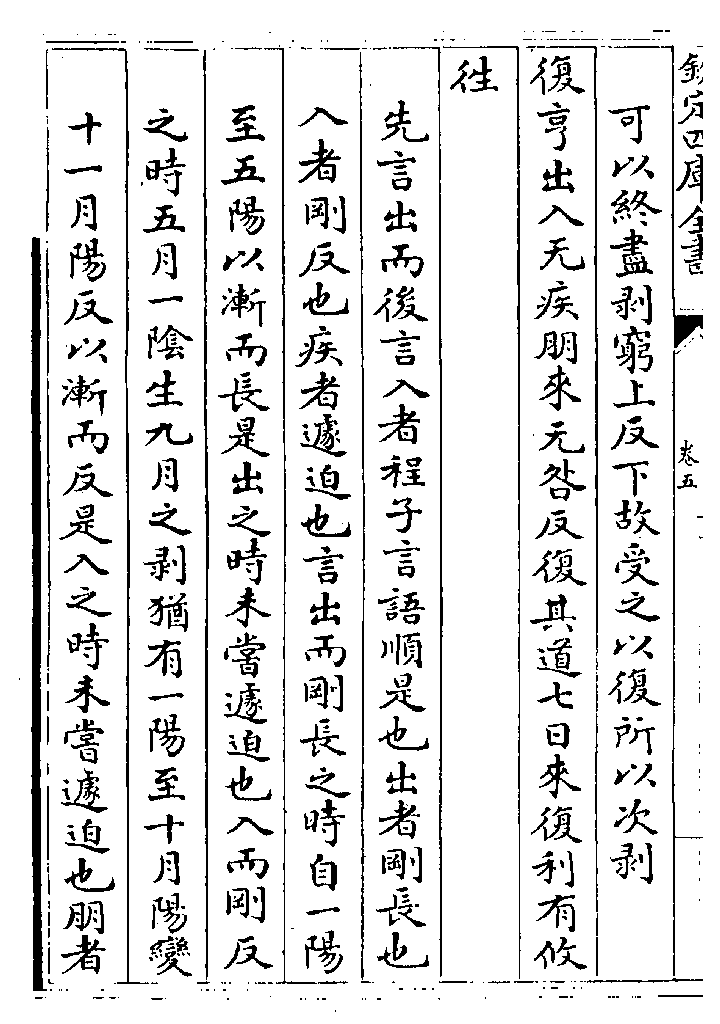 欽定四庫全書
卷五
可以終盡剥窮上反下故受之以復所以次剥
復亨出入无疾朋來无咎反復其道七日來復利有攸
徃
先言出而後言入者程子言語順是也出者剛長也
入者剛反也疾者遽迫也言出而剛長之時自一陽
至五陽以漸而長是出之時未嘗遽迫也入而剛反
之時五月一陰生九月之剥猶有一陽至十月陽變
十一月陽反以漸而反是入之時未嘗遽迫也朋者